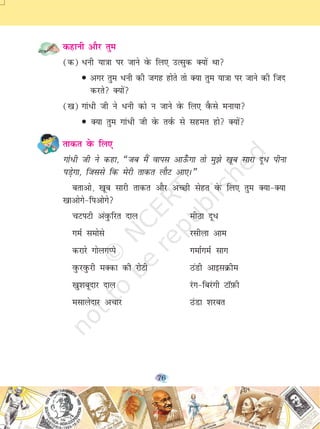 कहानी और तुम
(क) धनी यात्रा पर जाने के लिए उत्सुक क्यों था?
• अगर तुम धनी की जगह होते तो क्या तुम यात्रा पर जाने की जिद
करते? क्यों?
(ख) गांधी जी ने धनी को न जाने के लिए कैसे मनाया?
• क्या तुम गांधी जी के तर्क से सहमत हो? क्यों?
ताकत के लिए
गांधी जी ने कहा, “जब मैं वापस आऊँगा तो मुझे खूब सारा दूध पीना
पड़ेगा, जिससे कि मेरी ताकत लौट आए।”
बताओ, खूब सारी ताकत और अच्छी सेहत के लिए तुम क्या-क्या
खाओगे-पिओगे?
चटपटी अंकुरित दाल मीठा दूध
गर्म समोसे रसीला आम
करारे गोलगप्पे गर्मागर्म साग
कुरकुरी मक्का की रोटी ठंडी आइसक्रीम
खुशबूदार दाल रंग-बिरंगी टॉफ़ी
मसालेदार अचार ठंडा शरबत
© NCERT
not to be republished
76